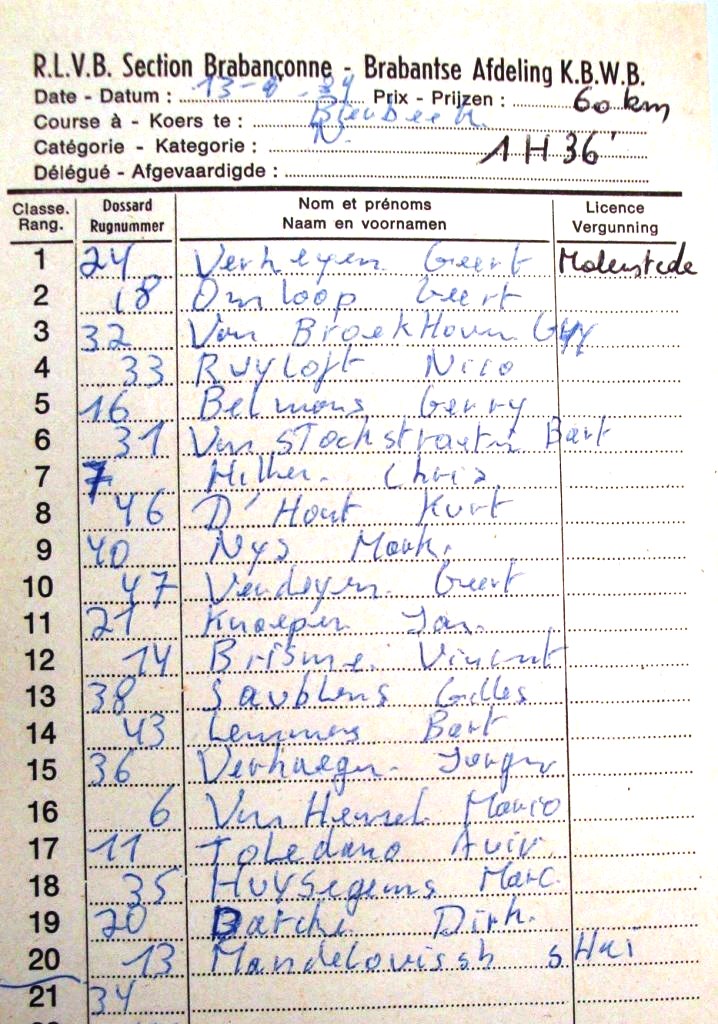 R.L.V.B. Section Brabançonne - Brabantse Afdeling K.B.W.B.
Date - Datum : 13-8-89 Prix - Prijzen : 60 km
Course à - Koers te : Bierbeek
Catégorie - Kategorie : N. 1H36'
Délégué - Afgevaardigde :
Classe. Rang. Dossard Rugnummer Nom et prénoms Naam en voornamen Licence Vergunning
1 24 Verheyen Geert Molenstede
2 18 Omloop Geert
3 32 Van Broekhoven Guy
4 33 Ruyloft Nico
5 16 Belmans Gerry
6 31 Van Stockstraeten Bart
7 7 Chris
8 46 D'Hont Kurt
9 40 Nys Mark.
10 47 Verdeyen Geert
11 21 Knaepen Jan.
12 14 Brisme Vincent
13 38 Saublens Gilles
14 43 Lemmens Bart
15 36 Verhaegen
16 6 Van Hensel Mario
17 11 Toledano Aviv
18 35 Huysegems Marc
19 20 Dirk.
20 13 Mandelovissh sHai
21 34